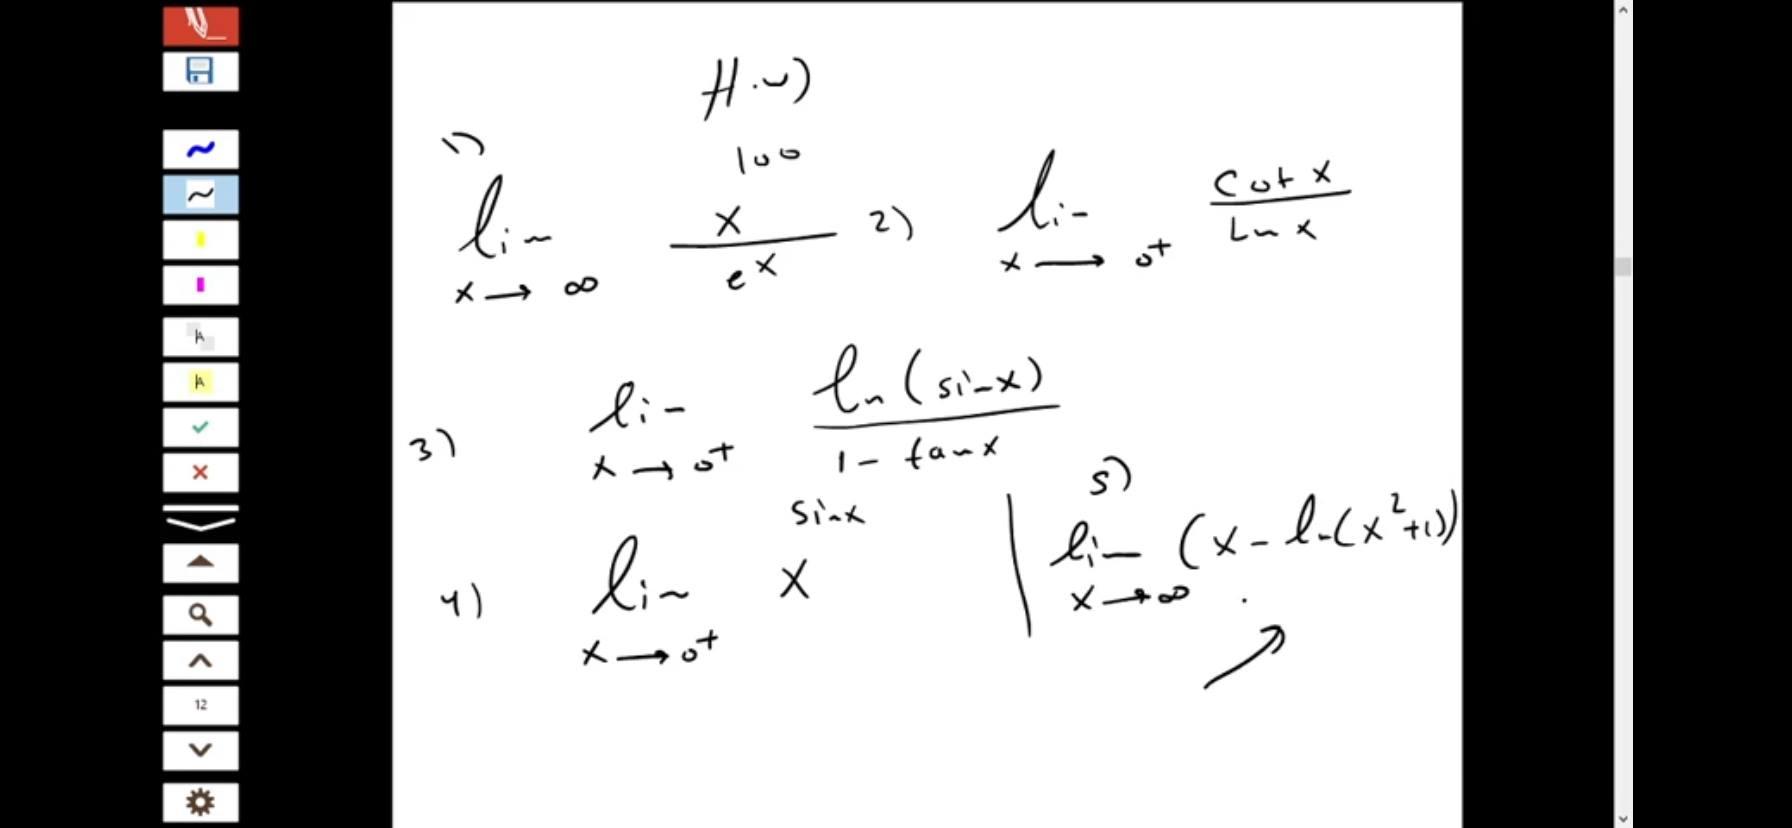 H.w)
1) lim x→∞ x^100 / e^x
2) lim x→0+ Cot x / Ln x
3) lim x→0+ ln(sinx) / 1 - tanx
4) lim x→0+ x^sinx
5) lim x→∞ (x - ln(x²+1))
12